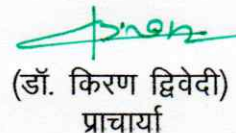 (डॉ. किरण द्विवेदी)
प्राचार्या